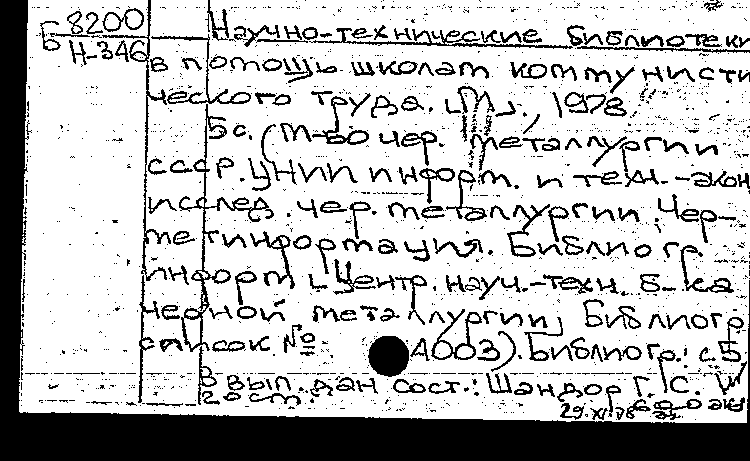 Б 8200
Н-346
Научно-технические библиотеки
в помощь школам коммунисти
ческого труда. [М]., 1978
5с. (М-во чер. металлургии
СССР. ЦНИИ информ. и техн.-экон
исслед. чер. металлургии. Чер-
метинформация. Библиогр
информ [Центр. науч.-техн. б-ка
черной металлургии] Библиогр
список №      А003). Библиогр.: с.5
В вып. дан сост.: Шандор Г. С.
20 ст.
29.XI.78